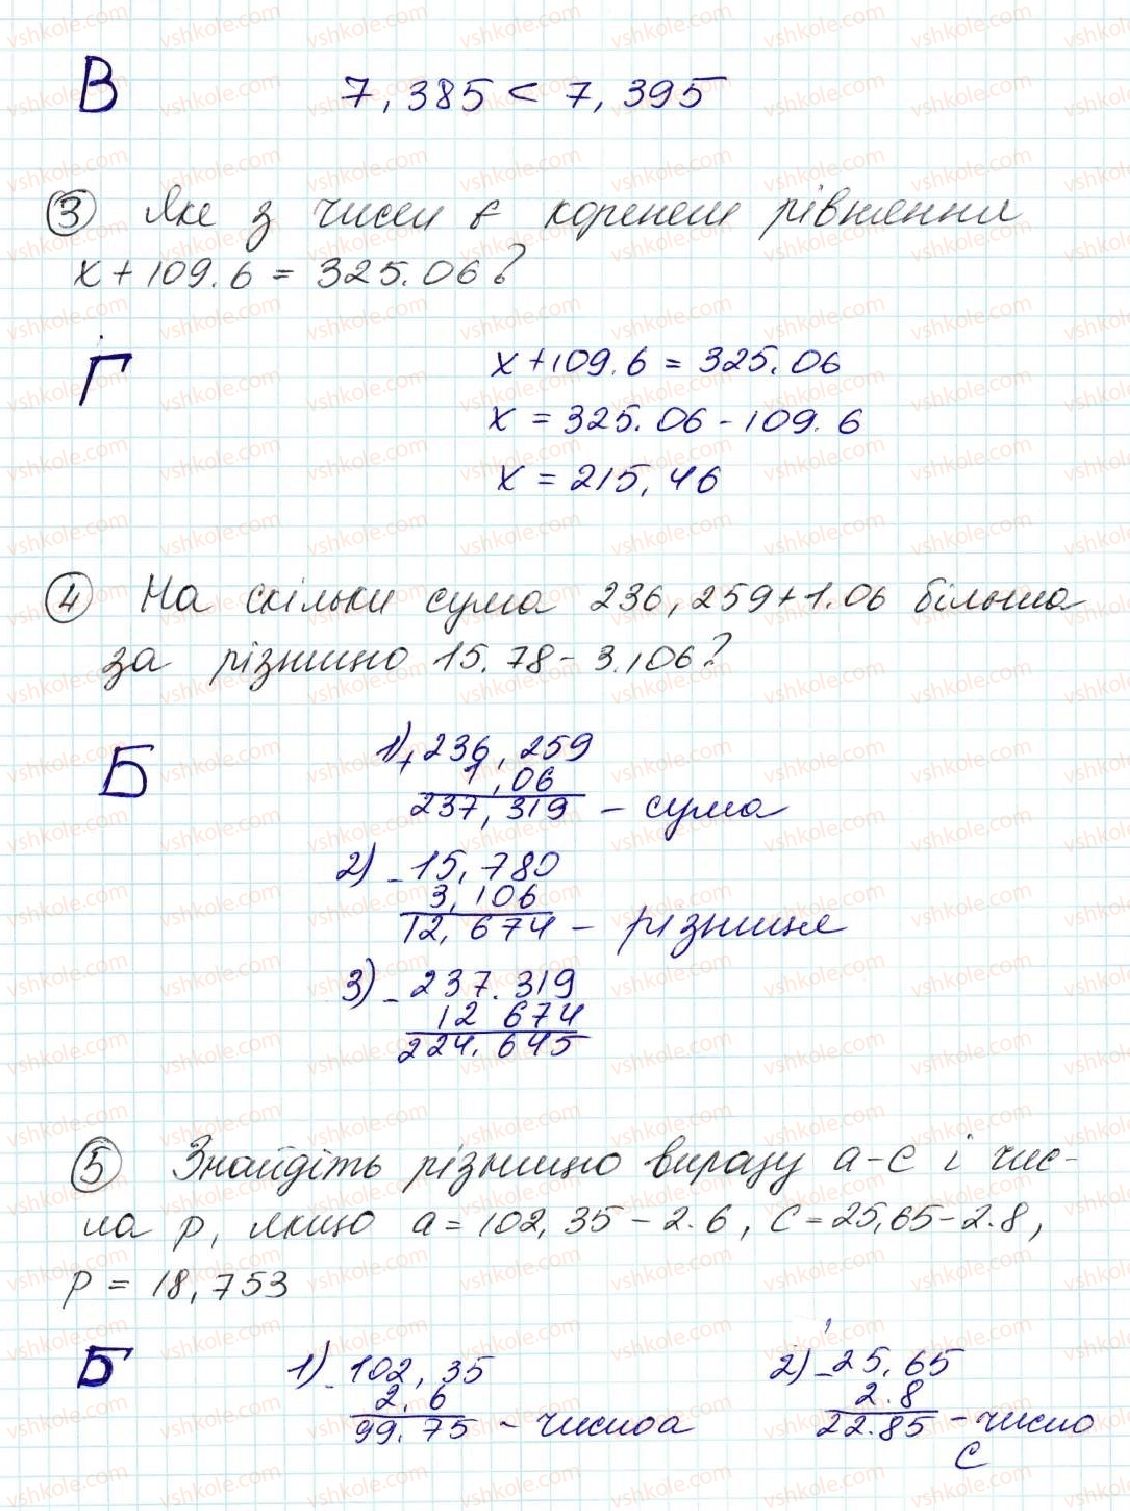 В 7,385 < 7,395
3 Яке з чисел є коренем рівняння
x + 109.6 = 325.06?
Г x + 109.6 = 325.06
x = 325.06 - 109.6
x = 215,46
4 На скільки сума 236,259 + 1.06 більша
за різницю 15.78 - 3.106?
Б 1) + 236,259
1,06
237,319 - сума
2) - 15,780
3,106
12,674 - різниця
3) - 237.319
12 674
224.645
5 Знайдіть різницю виразу a - c і чис-
ла p, якщо a = 102,35 - 2.6, c = 25,65 - 2.8,
p = 18,753
Б 1) - 102,35 2) - 25,65
2,6 2.8
99.75 - число a 22.85 - число
c
vshkole.com